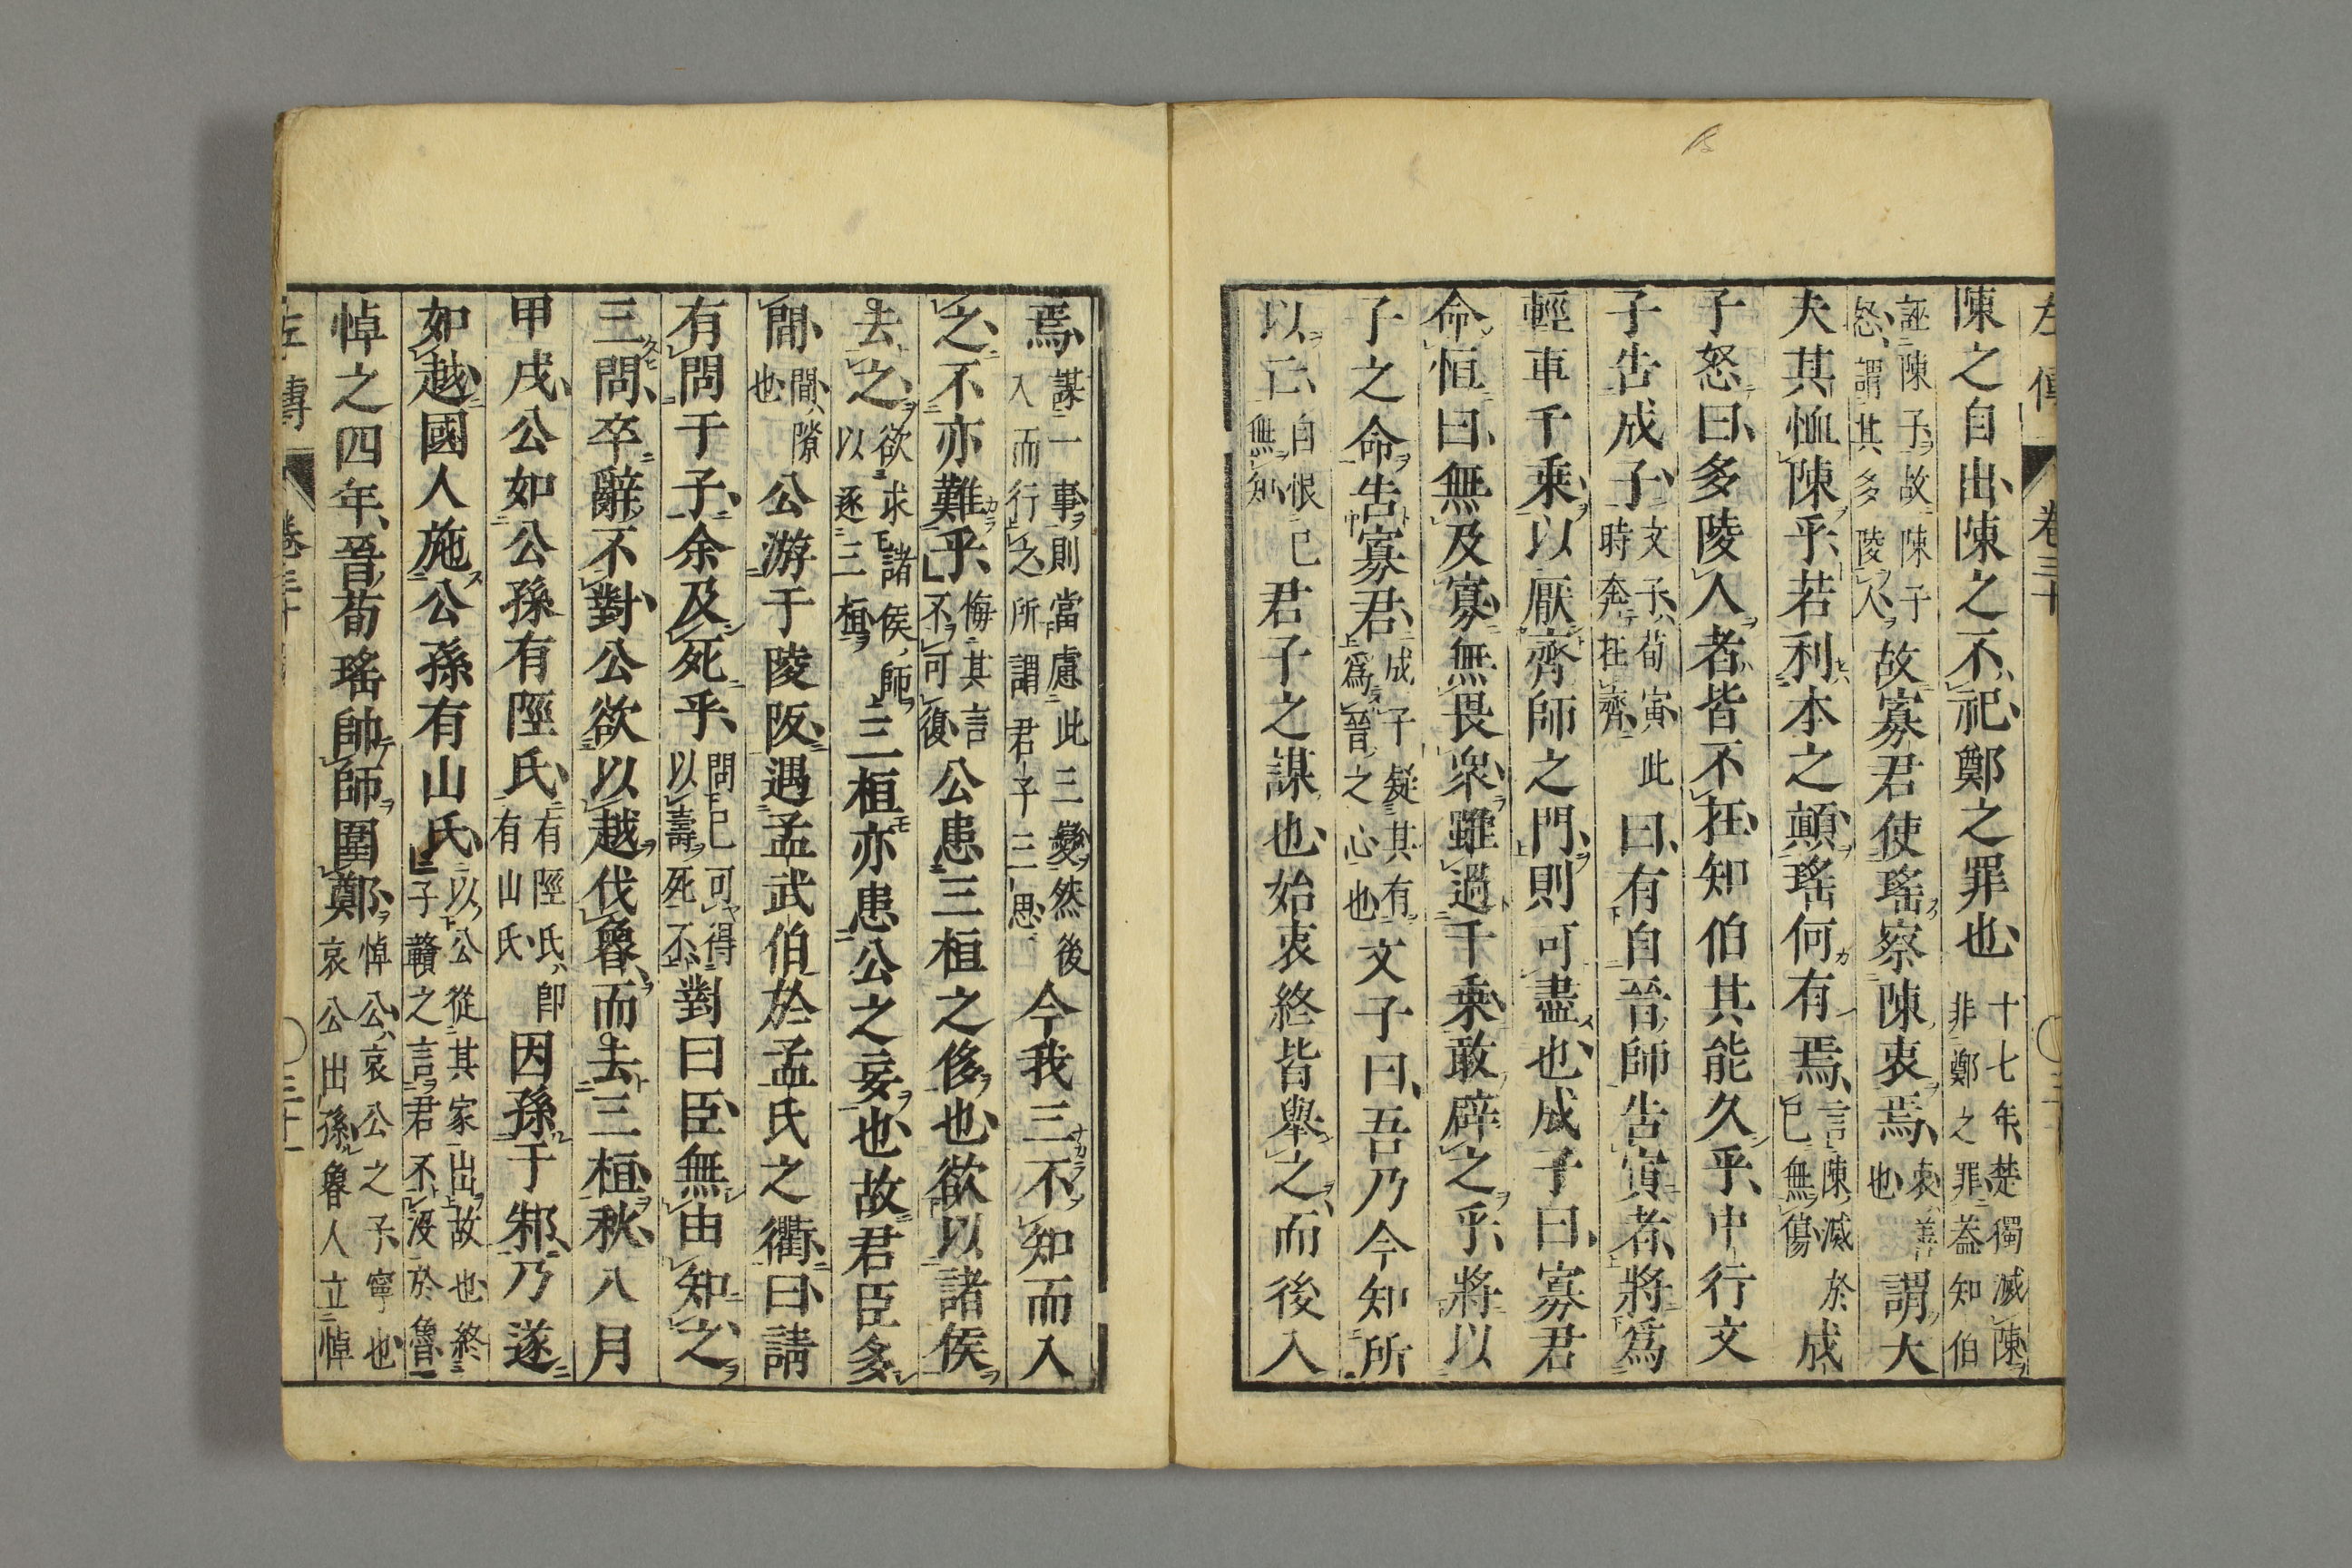 左傳 卷三十
陳之自出陳之不祀鄭之罪也十七年楚獨滅陳非鄭之罪蓋知伯
誣陳子故陳子怒謂其多陵人故寡君使瑤察陳衷焉衷善也謂大
夫其恤陳乎若利本之顚瑤何有焉言陳滅於己無傷成
子怒曰多陵人者皆不在知伯其能久乎中行文
子告成子文子荀寅此時奔在齊曰有自晉師告寅者將爲
輕車千乘以厭齊師之門則可盡也成子曰寡君
命恒曰無及寡無畏衆雖過千乘敢辟之乎將以
子之命告寡君成子疑其有爲晉之心也文子曰吾乃今知所
以亡自恨己無知君子之謀也始衷終皆舉之而後入
焉謀一事則當慮此三變然後入而行之所謂君子三思今我三不知而入
之不亦難乎悔其言不可復公患三桓之侈也欲以諸侯
去之欲求諸侯師以逐三桓三桓亦患公之妄也故君臣多
間間隙也公游于陵阪遇孟武伯於孟氏之衢曰請
有問于子余及死乎問己可得以壽死不對曰臣無由知之
三問卒辭不對公欲以越伐魯而去三桓秋八月
甲戌公如公孫有陘氏有陘氏卽有山氏因孫于邾乃遂
如越國人施公孫有山氏以公從其家出故也終子贛之言君不沒於魯
悼之四年晉荀瑤帥師圍鄭悼公哀公之子寧也哀公出孫魯人立悼
左傳 卷三十 三十一